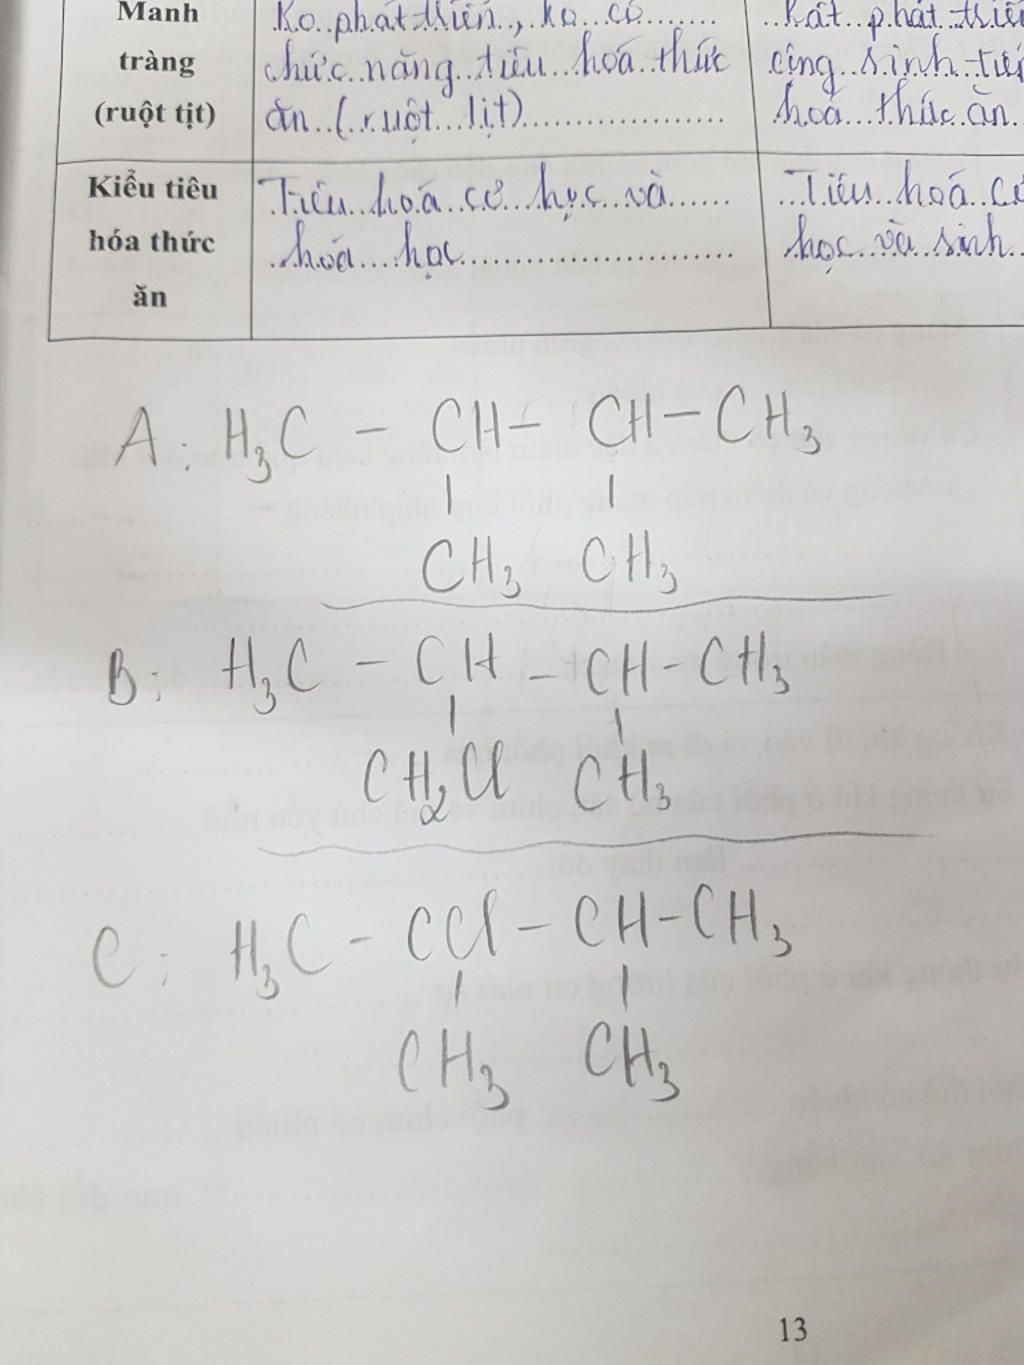 Manh tràng (ruột tịt)
Ko phát triển, ko có
chức năng tiêu hoá thức
ăn (ruột tịt)
Rất phát triển
cộng sinh
hoá thức ăn
Kiểu tiêu hóa thức ăn
Tiêu hoá cơ học và
hoá học
Tiêu hoá cơ
học và sinh
A: H3C - CH - CH - CH3
CH3 CH3
B: H3C - CH - CH - CH3
CH2Cl CH3
C: H3C - CCl - CH - CH3
CH3 CH3
13